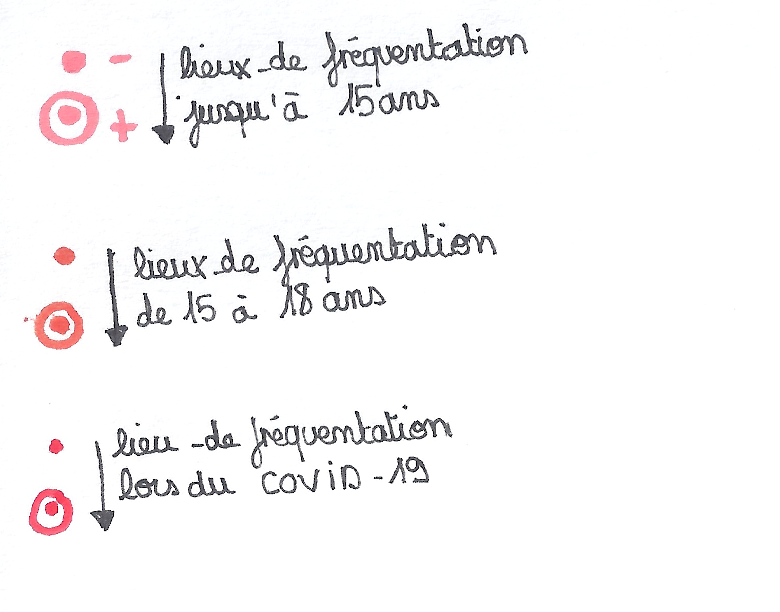 - lieux de fréquentation
+ jusqu'à 15 ans
lieux de fréquentation
de 15 à 18 ans
lieu de fréquentation
lors du COViD-19